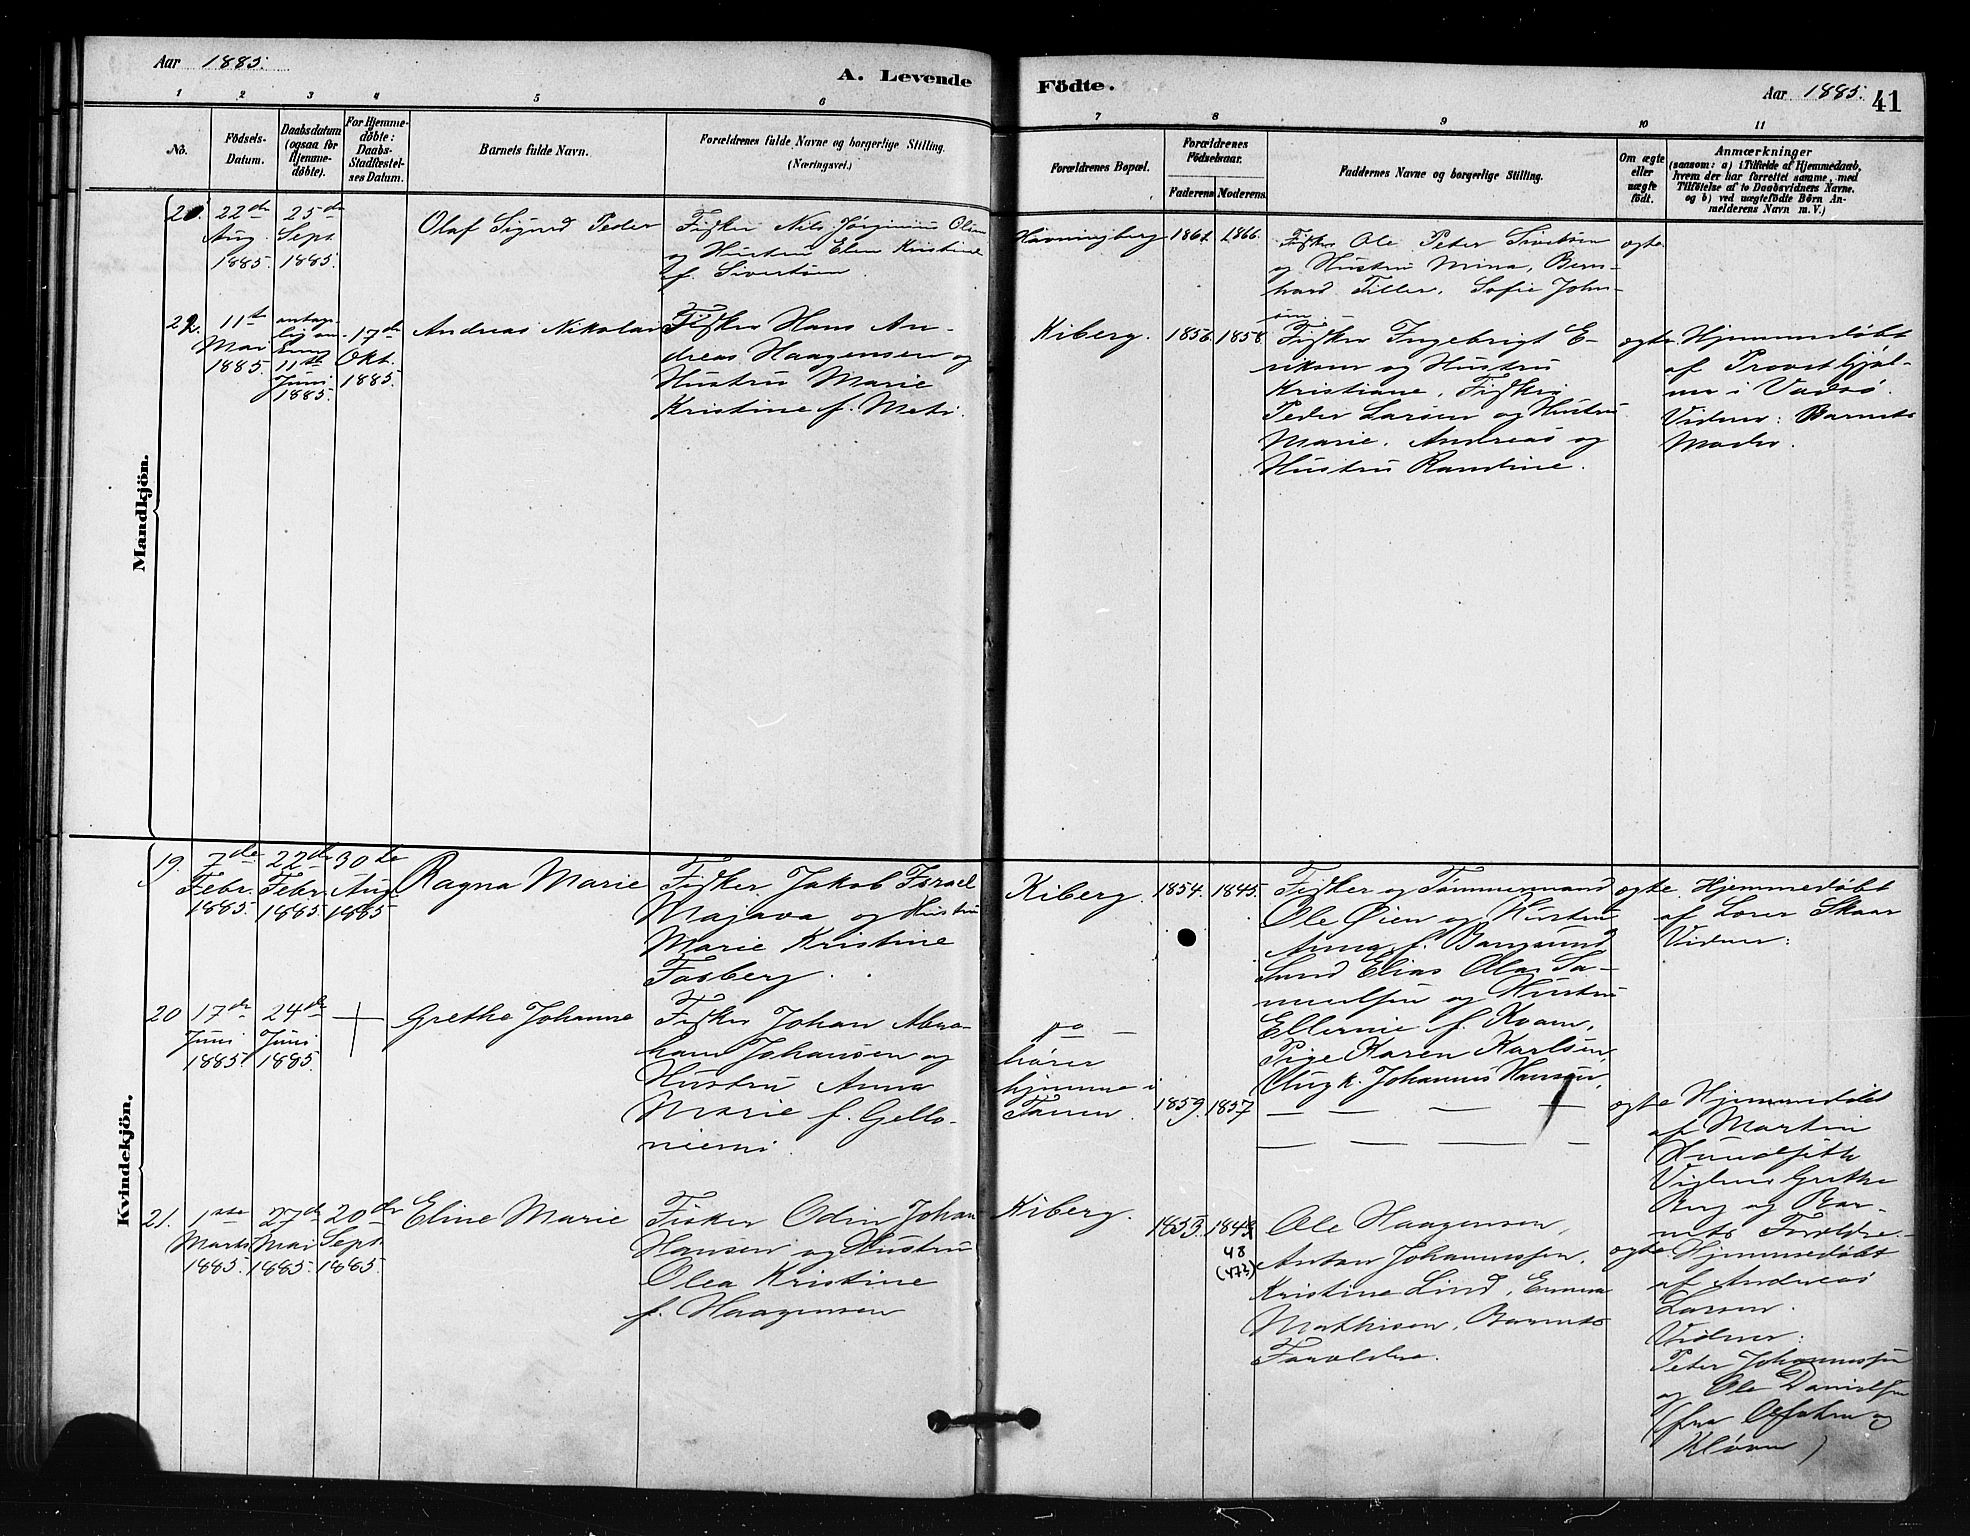 Aar 1885.
A. Levende
Födte.
Aar 1885. 41
1 2 3 4 5 6 7 8 9 10 11
No.
Födsels-
Datum.
Daabsdatum
(ogsaa for
Hjemme-
döbte).
For Hjemme-
döbte:
Daabs-
Stadfæstel-
ses Datum.
Barnets fulde Navn.
Forældrenes fulde Navne og borgerlige Stilling.
(Næringsvei.)
Forældrenes Bopæl.
Forældrenes
Födselsaar.
Faderens. Moderens.
Faddernes Navne og borgerlige Stilling.
Om ægte
eller
uægte
födt.
Anmærkninger
(saasom: a) i Tilfælde af Hjemmedaab,
hvem der har forrettet samme, med
Tilföielse af to Daabsvidners Navne.
og b) ved uægtefödte Börn An-
melderens Navn m. V.)
Mandkjön.
21.
22de
Aug
1885.
25de
Sept.
1885.
Olaf Sigurd Peder
Fisker Nils Jørginius Olsen
og Hustru Elen Kristine
f. Sivertsen.
Havningberg
1861. 1866.
Fisker Ole Peter Sivertsen
og Hustru Mina, Bern-
hard Tiller, Sofie John-
sen.
ægte
22.
11te
Mai
1885.
antage-
lig
11te
Juni
1885.
17de
Okt.
1885.
Andreas Nikolai
Fisker Hans An-
dreas Haagensen og
Hustru Marie
Kristine f. Mati.
Kiberg.
1856. 1858.
Fisker Ingebrigt E-
riksen og Hustru
Kristiane, Fisker
Peder Larsen og Hustru
Marie, Andreas og
Hustru Randine.
ægte.
Hjemmedøbt
af Provst Hjal-
mer i Vadsø.
Vidner: Barnets
Moder.
Kvindekjön.
19.
7de
Febr.
1885.
22de
Febr.
1885
30de
Aug.
1885
Ragna Marie
Fisker Jakob Israel
Majava og Hustru
Marie Kristine
Fosberg.
Kiberg.
1854. 1845.
Fisker og Tømmermand
Ole Øien og Hustru
Anna f. Bangsund
Elias Olai Sa-
muelsen og Hustru
Ellernie f. Kvam,
Pige Karen Karlsen,
Ungk. Johannes Hansen.
ægte
Hjemmedøbt
af Lærer Skaar
Vidner:
20
17de
Juni
1885.
24de
Juni
1885.
Grethe Johanne
Fisker Johan Abra-
ham Johansen og
Hustru Anna
Marie f. Gello-
niemi.
do —
hører
hjemme i
Tanen.
1859. 1857
— — — —
— — — —
ægte
Hjemmedøbt
af Martin
Vidner Grethe
Berg og Bar-
nets Forældre.
21.
1ste
Marts
1885.
27de
Mai
1885.
20de
Sept.
1885.
Eline Marie
Fisker Odin Johan
Hansen og Hustru
Olea Kristine
f. Haagensen
Kiberg.
1853. 1849
48
(473)
Ole Haagensen,
Anton Johannessen,
Kristine Lind, Emma
Mathisen, Barnets
Forældre.
ægte.
Hjemmedøbt
af Andreas
Larsen.
Vidner:
Peter Johannessen
og Ole Danielsen
(fra